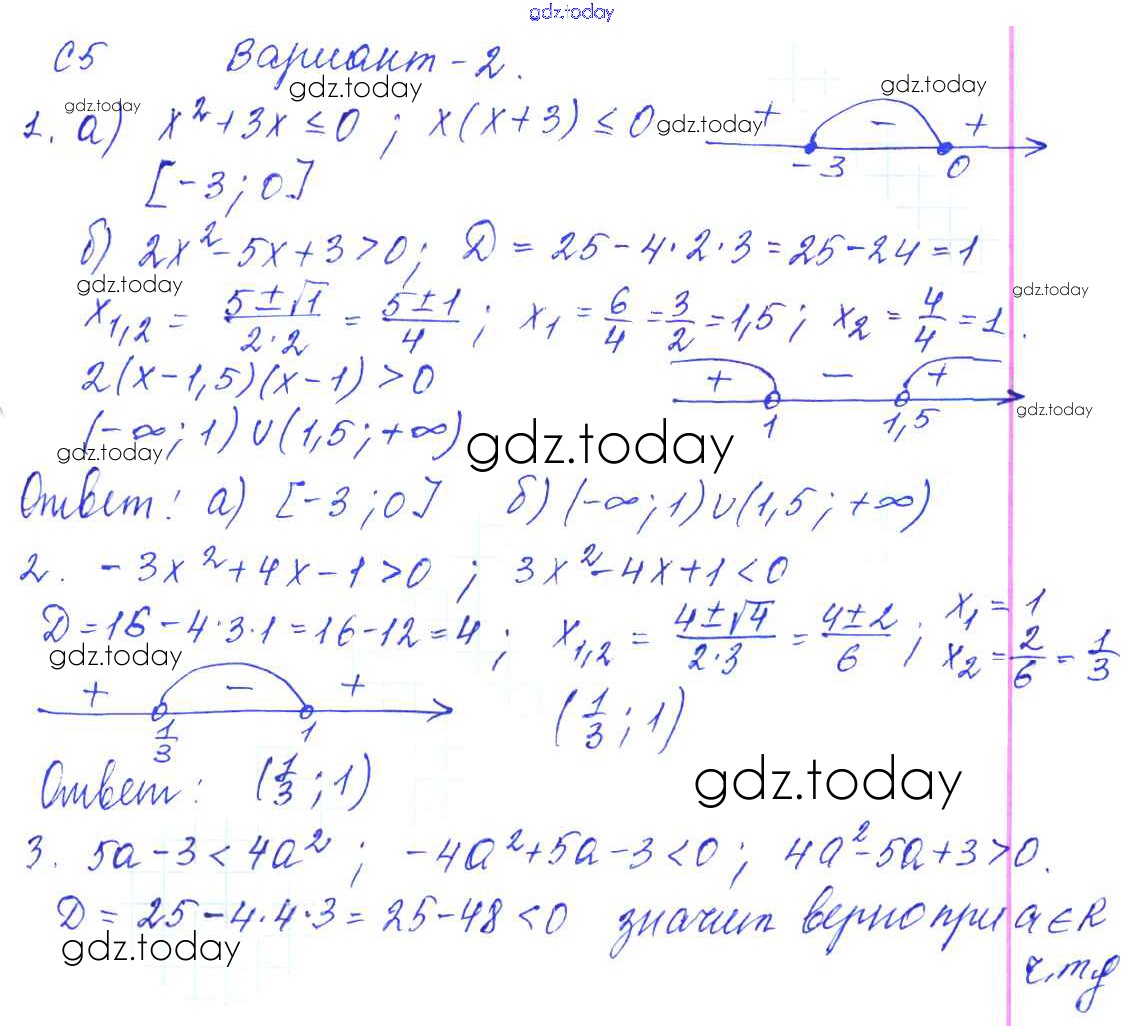 gdz.today
С5 Вариант-2.
gdz.today gdz.today
gdz.today
1. а) x²+3x≤0 ; x(x+3)≤0 + - +
gdz.today
-3 0
[-3; 0]
б) 2x²-5x+3>0; D = 25-4·2·3=25-24=1
gdz.today gdz.today
x₁,₂ = (5±√1)/(2·2) = (5±1)/4 ; x₁ = 6/4 = 3/2 = 1,5 ; x₂ = 4/4 = 1.
2(x-1,5)(x-1)>0 + - +
1 1,5 gdz.today
(-∞; 1)∪(1,5; +∞) gdz.today
gdz.today
Ответ: а) [-3; 0] б) (-∞; 1)∪(1,5; +∞)
2. -3x²+4x-1>0 ; 3x²-4x+1<0
D=16-4·3·1=16-12=4 ; x₁,₂ = (4±√4)/(2·3) = (4±2)/6 ; x₁=1
x₂ = 2/6 = 1/3
gdz.today
+ - +
1/3 1 (1/3; 1)
gdz.today
Ответ: (1/3; 1)
3. 5a-3<4a² ; -4a²+5a-3<0 ; 4a²-5a+3>0.
D = 25-4·4·3=25-48<0 значит верно при a∈R
gdz.today
ч.тд